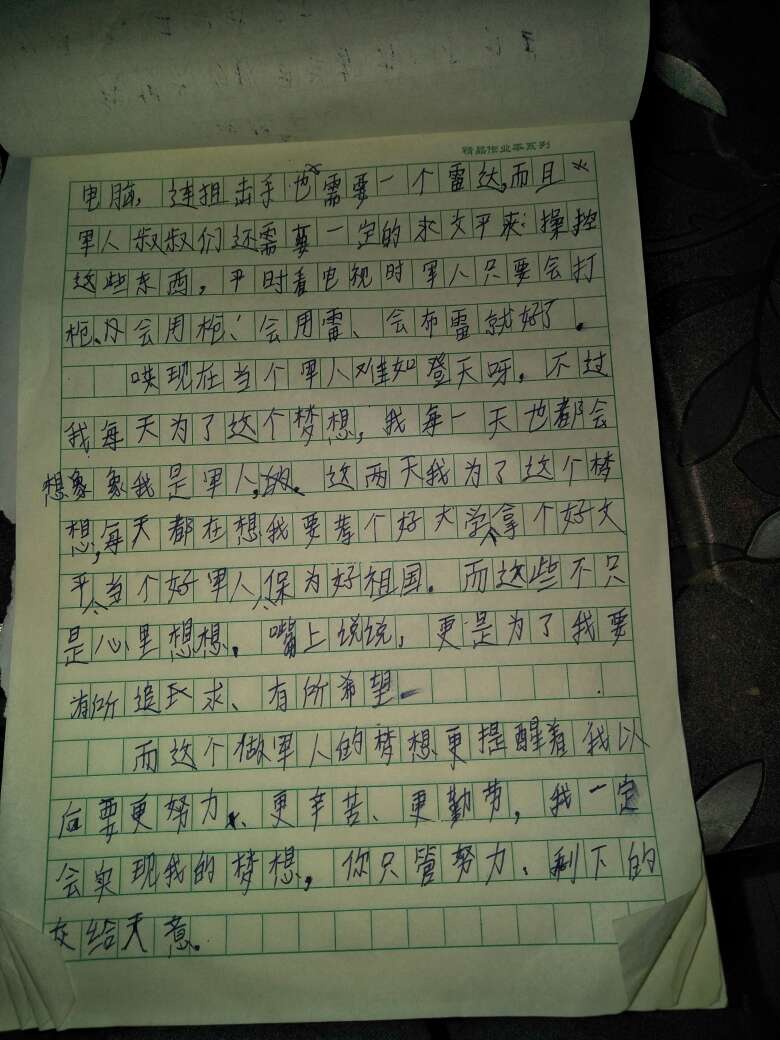 精品作业本系列
电脑，连狙击手也需要一个雷达，而且
军人叔叔们还需要一定的求文平来操控
这些东西。平时看电视时军人只要会打
枪、及会用枪、会用雷、会布雷就好了。
唉现在当个军人难如登天呀。不过
我每天为了这个梦想，我每一天也都会
想象象我是军人，的。这两天我为了这个梦
想，每天都在想我要考个好大学拿个好文
平当个好军人保为好祖国。而这些不只
是心里想想。嘴上说说，更是为了我要
有所追求、有所希望
而这个做军人的梦想更提醒着我以
后要更努力、更辛苦、更勤劳，我一定
会实现我的梦想，你只管努力、剩下的
交给天意。